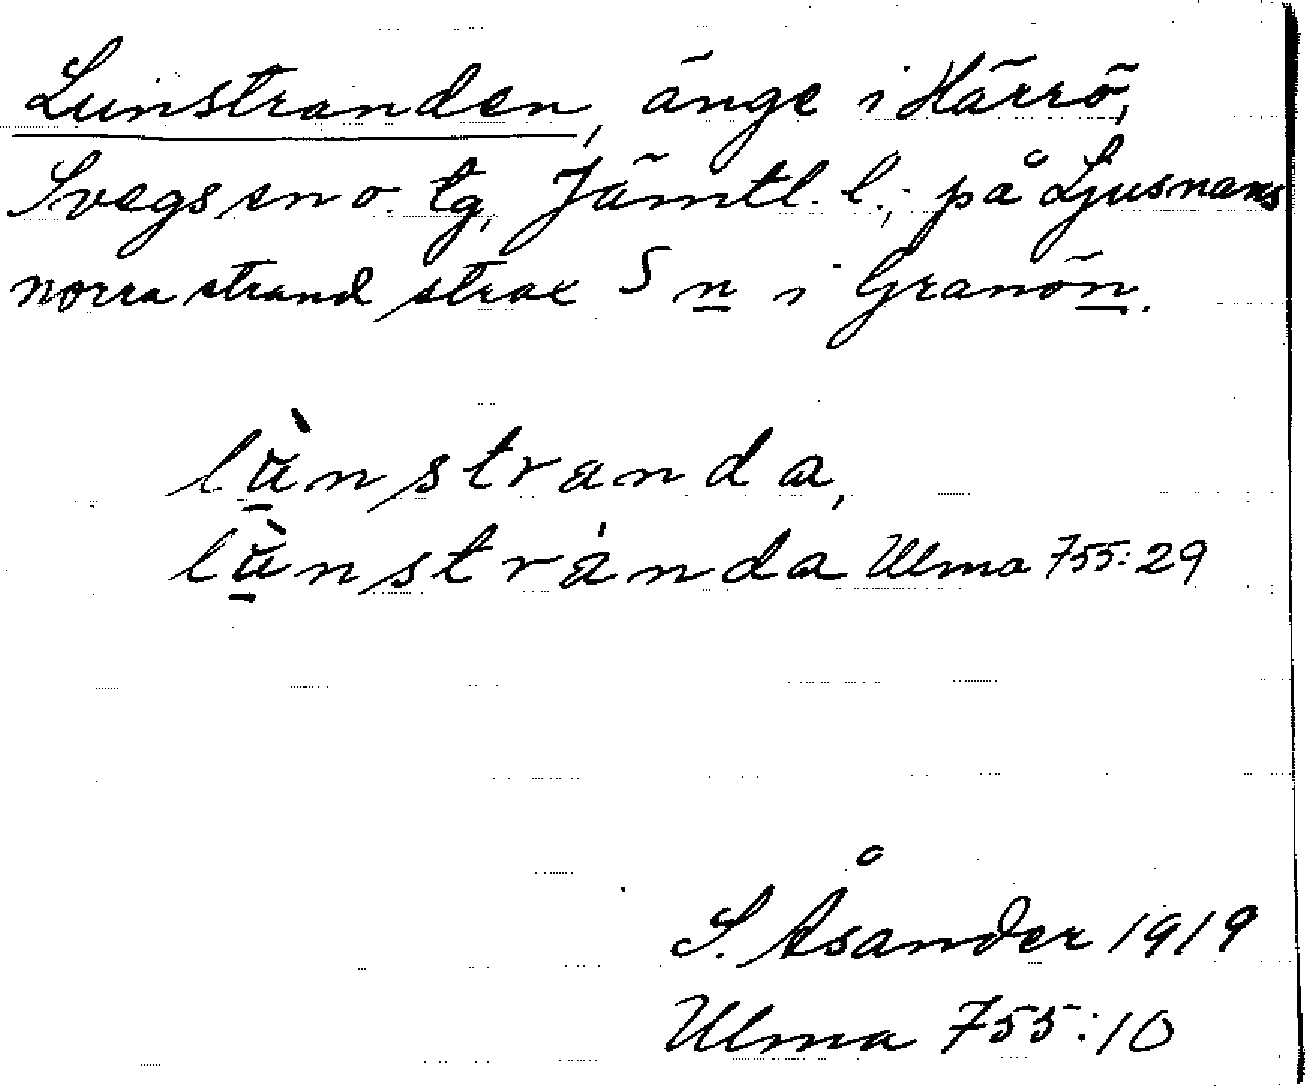 Lunstranden, änge i Härrö,
Svegs sn o. tg, Jämtl. l.; på Ljusnans
norra strand strax S n i Granön.
lùnstranda,
lùnstránda Ulma 755:29
S. Åsander 1919
Ulma 755:10